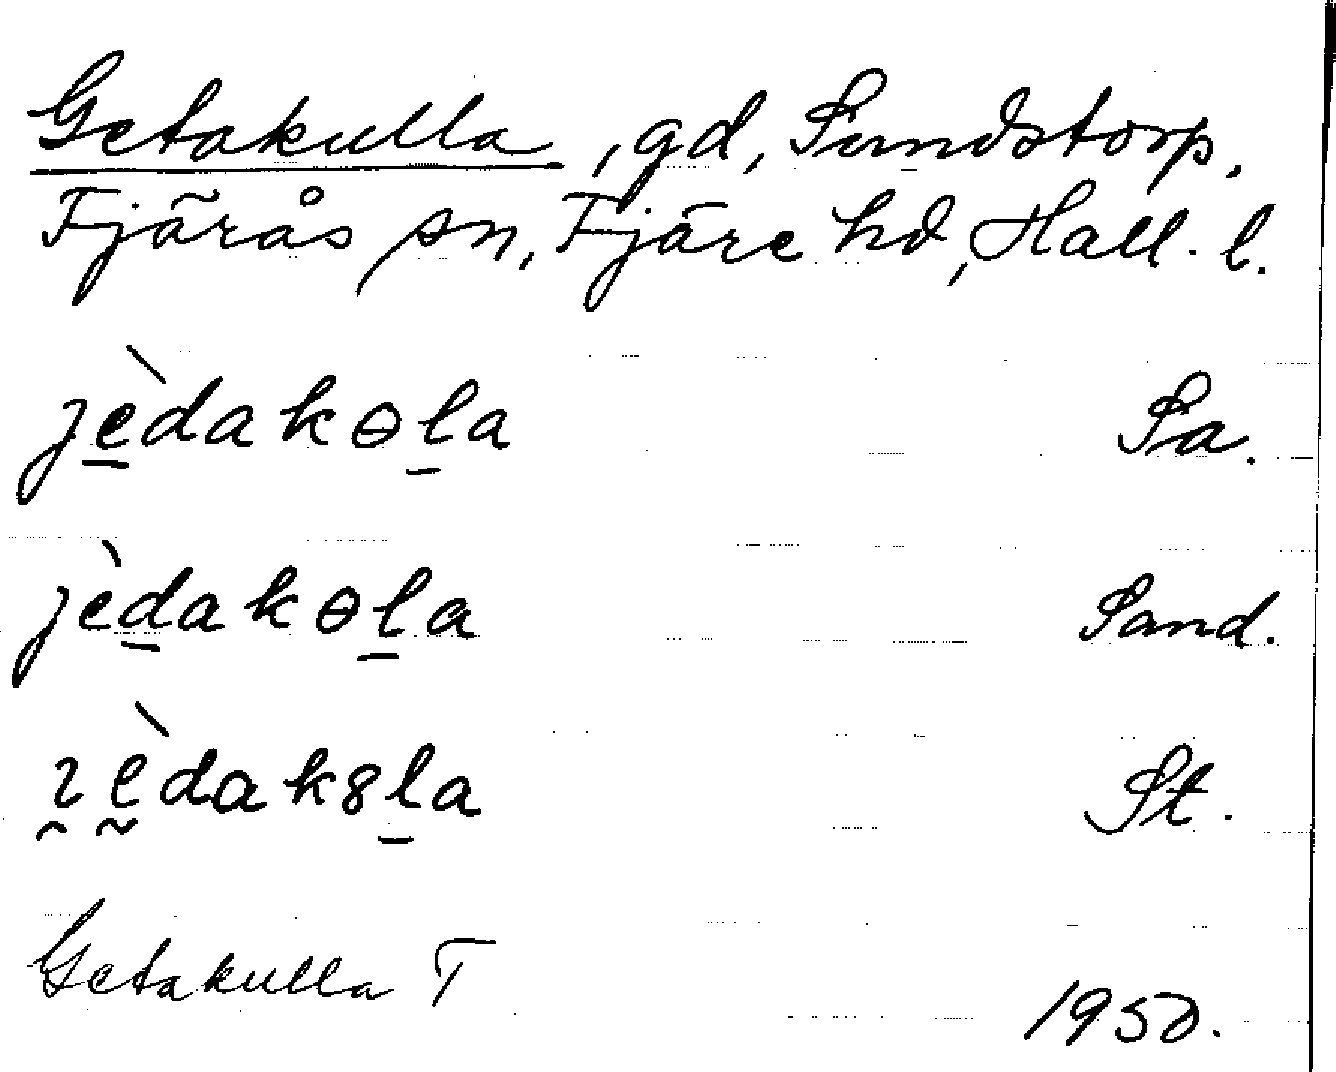 Getakulla, gd, Sundstorp,
Fjärås sn, Fjäre hd, Hall. l.
jèdakɵla Sa.
jèdakɵla Sand.
ɿèdak8la St.
Getakulla T
1950.